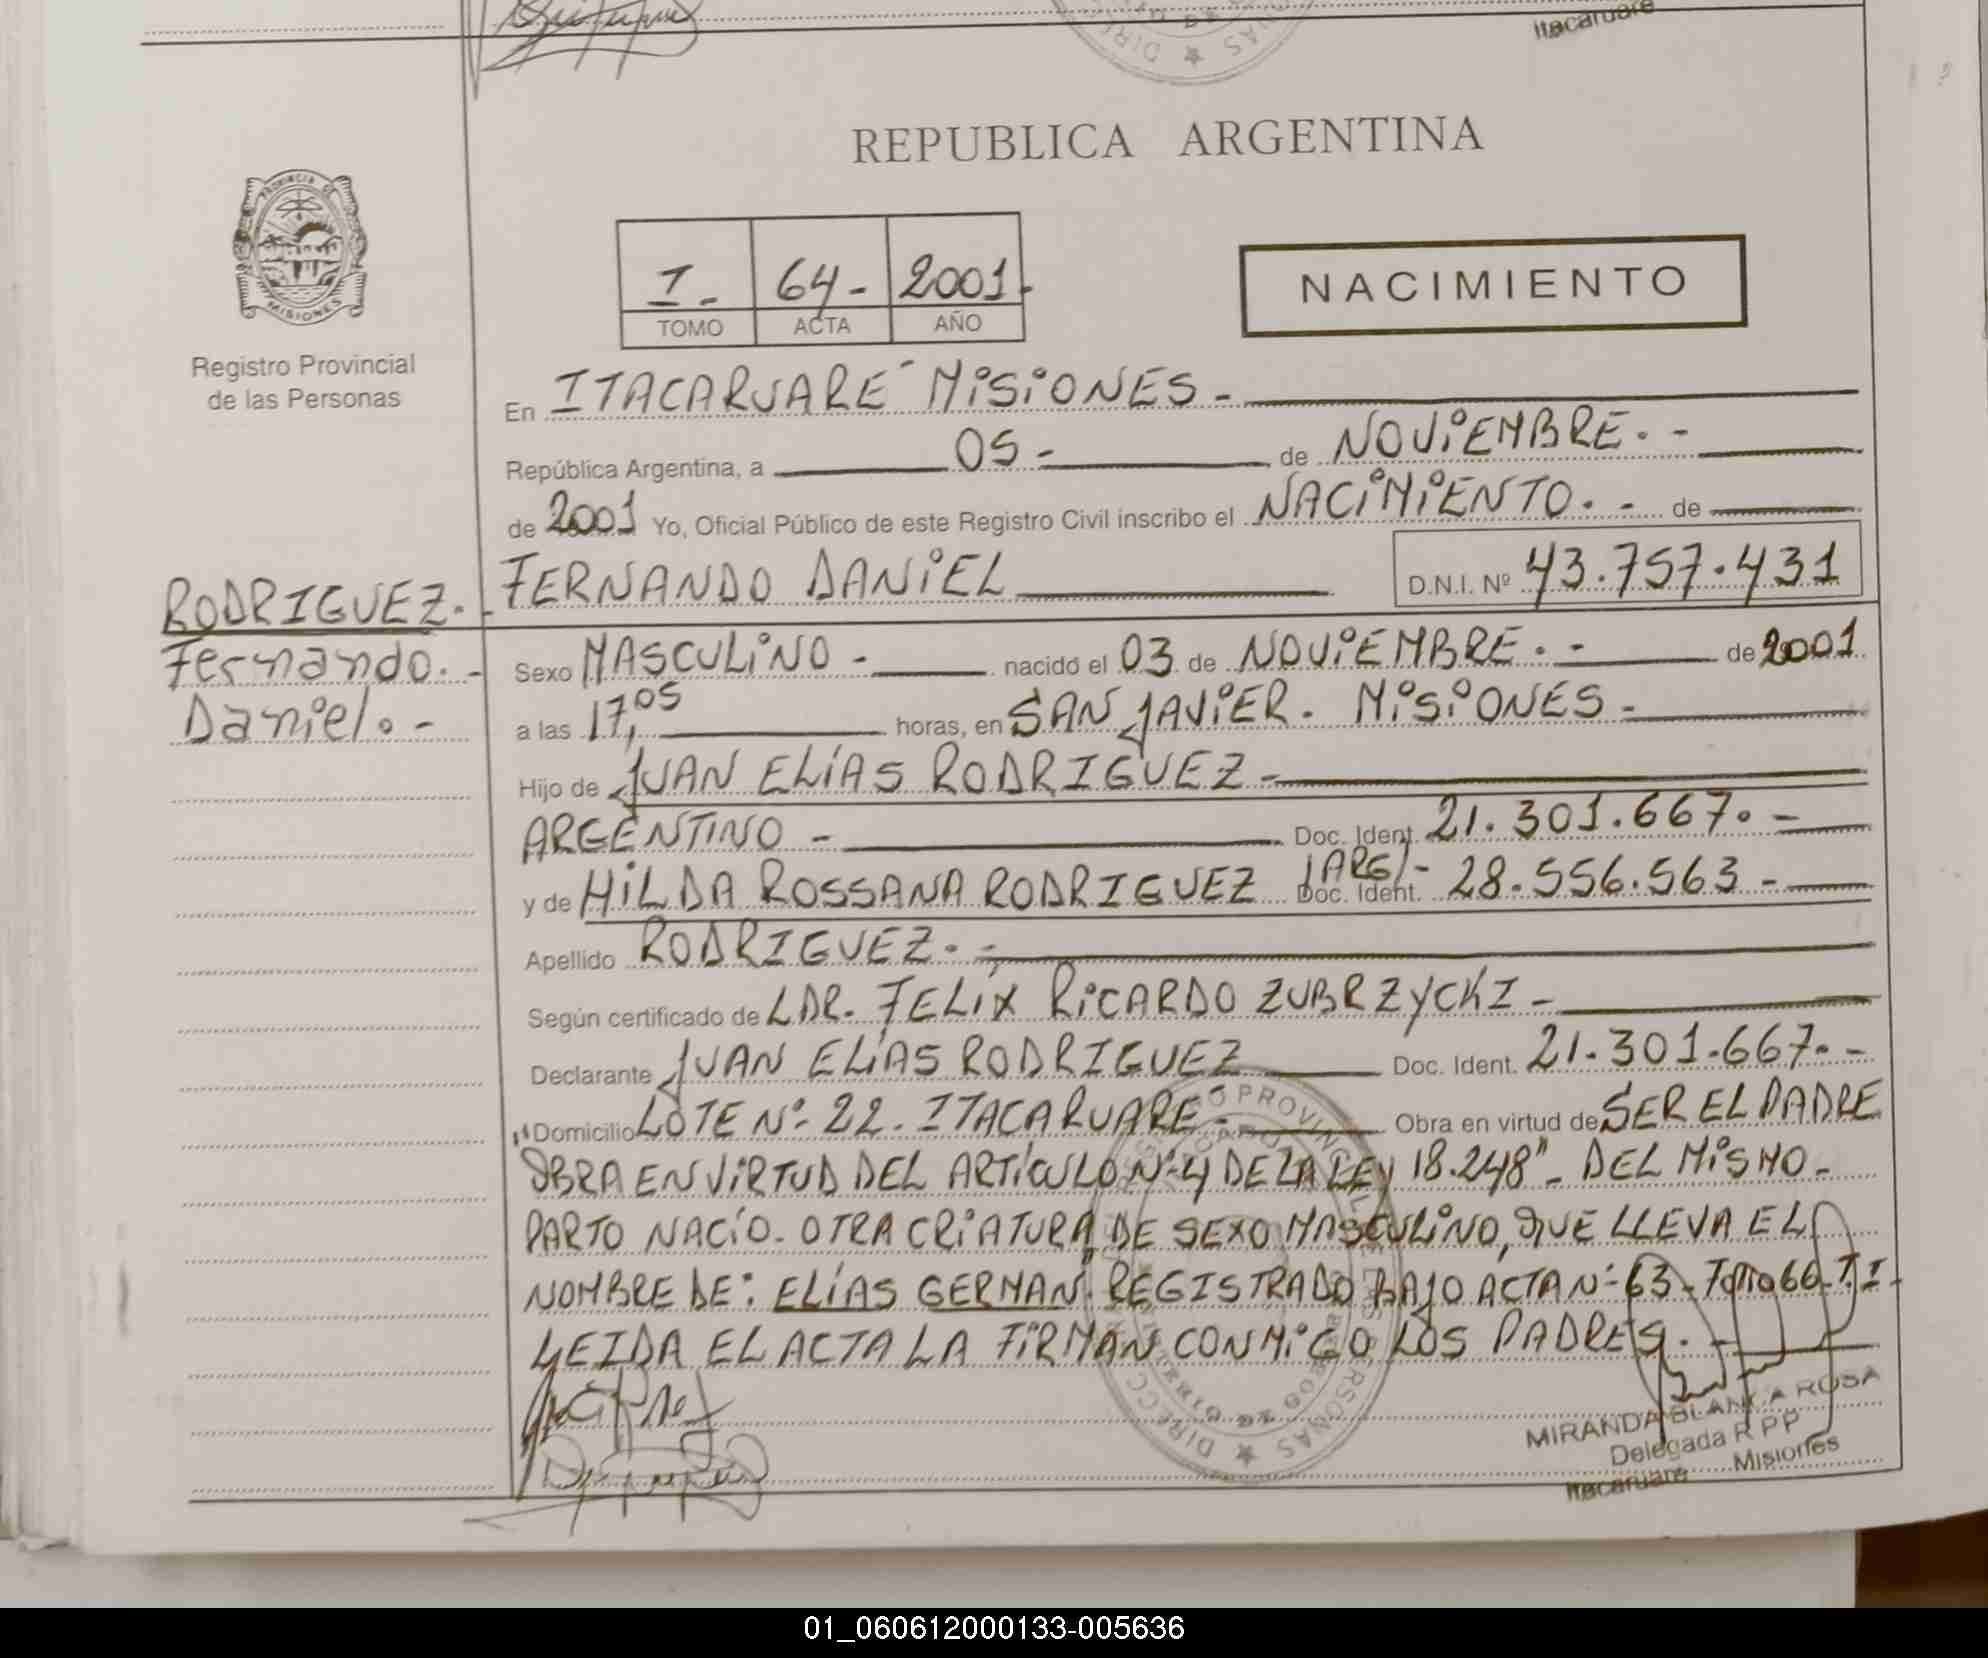 Itacaruare
REPUBLICA ARGENTINA
PROVINCIA DE MISIONES
Registro Provincial
de las Personas
I - 64 - 2001 -
TOMO ACTA AÑO
NACIMIENTO
En ITACARUARE - MiSiONES -
República Argentina, a 05 - de NOViEMBRE. -
de 2001 Yo, Oficial Público de este Registro Civil inscribo el NACiMiENTO. - de
FERNANDO DANiEL D.N.I. Nº 43.757.431
RODRIGUEZ. -
Fernando. -
Daniel. -
Sexo MASCULiNO - nacido el 03 de NOViEMBRE. - de 2001
a las 17,05 horas, en SAN JAViER. MiSiONES -
Hijo de JUAN ELíAS RODRIGUEZ -
ARGENTINO - Doc. Ident. 21.301.667. -
y de HiLDA ROSSANA RODRIGUEZ (ARG) - Doc. Ident. 28.556.563 -
Apellido RODRIGUEZ. -
Según certificado de LDR. FELíX RiCARDO ZUBRZYCKI -
Declarante JUAN ELíAS RODRIGUEZ Doc. Ident. 21.301.667. -
"Domicilio LOTE Nº 22. ITACARUARE - Obra en virtud de SER EL PADRE
OBRA EN ViRTUD DEL ARTíCULO Nº 4 DE LA LEY 18.248" - DEL MiSMO -
PARTO NACíO - OTRA CRiATURA, DE SEXO MASCULiNO, QUE LLEVA EL
NOMBRE DE: ELíAS GERMAN. REGISTRADO BAJO ACTA Nº 63 - Folio 66 - T. I -
LEIDA EL ACTA LA FiRMAN CONMiGO LOS PADRES. -
MIRANDA BLANCA ROSA
Delegada R P P
Itacaruare Misiones
01_060612000133-005636